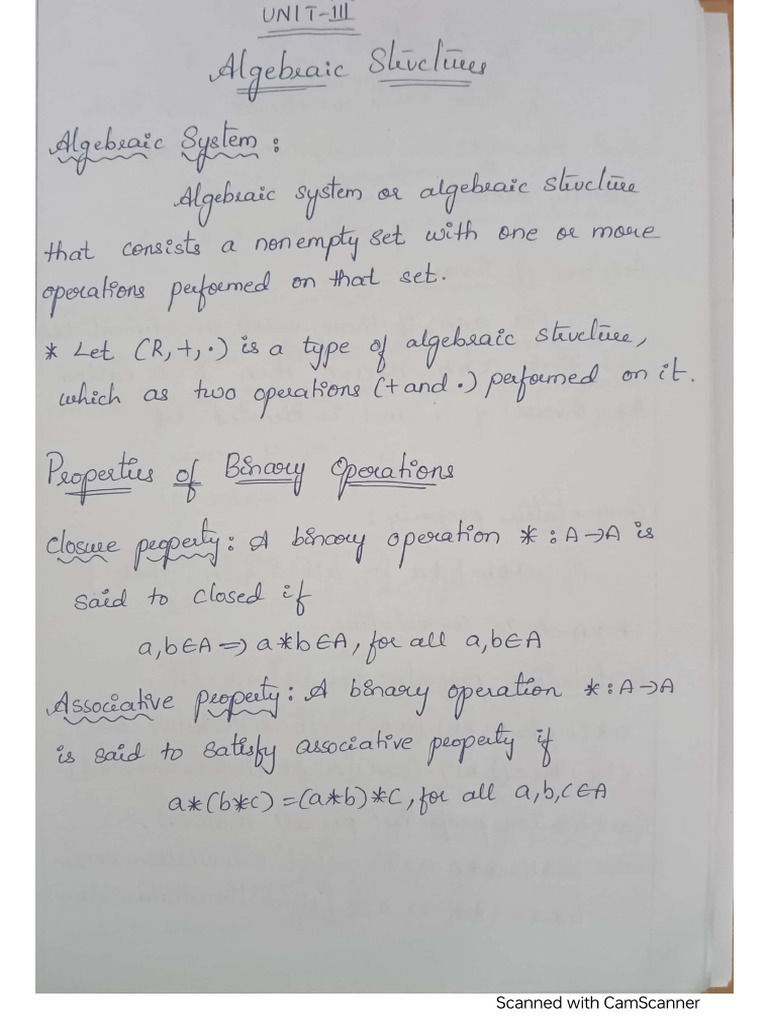 UNIT-III
Algebraic Structures
Algebraic System :
Algebraic system or algebraic structure
that consists a nonempty set with one or more
operations performed on that set.
* Let (R, +, ·) is a type of algebraic structure,
which as two operations (+ and ·) performed on it.
Properties of Binary Operations
Closure property : A binary operation * : A → A is
said to closed if
a, b ∈ A ⇒ a * b ∈ A, for all a, b ∈ A
Associative property : A binary operation * : A → A
is said to satisfy associative property if
a * (b * c) = (a * b) * c, for all a, b, c ∈ A
Scanned with CamScanner